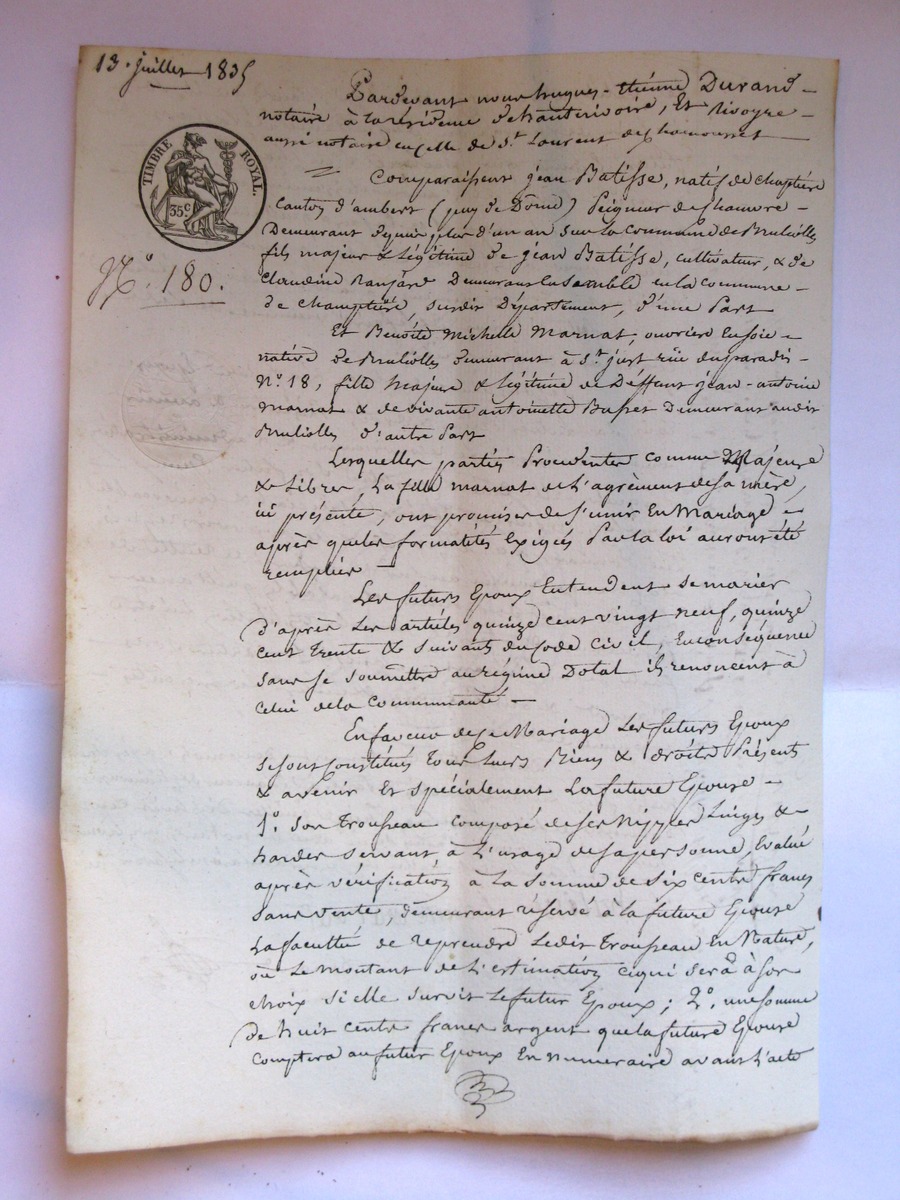 13. juillet 1835
TIMBRE ROYAL.
35c
N.o 180.
Pardevant nous hugues-étiénne Durand
notaire à la résidence de hauterivoire, Et Rivoyre
aussi notaire en celle de St. Laurent de chamousset
Comparaissent jean Batisse, natif de
Canton d'ambert (puy de Dome) Peigneur de chanvre
Demeurant depuis plus d'un an sur la Commune de Brulioles
fils majeur & Légitime de jéan Batisse, cultivateur, & de
Claudine Demeurant Ensemble en la Commune
de susdit Département, d'une Part
Et Benoite Michelle Marnat, ouvriere En soie
native de Brulioles demeurant à St. just rue du paradis
No. 18, fille Majeure & Légitime de Déffunt jean-antoine
Marnat & de vivante antoinette Demeurant audit
Brulioles d'autre Part
Lesquelles parties Procedentes comme Majeures
& Libres, La fille marnat de L'agrément de sa mère,
ici présente, ont promises de s'unir En Mariage
après que les formalités Exigées Par la loi auront été
remplies
Les futurs Epoux Entendent se marier
d'après Les articles quinze cent vingt neuf, quinze
cent trente & suivants du Code Civil, En conséquence
sans se soumettre au régime Dotal ils renoncent à
celui de la Communauté
En faveur de ce Mariage Les futurs Epoux
se sont Constitués tous Leurs Biens & droits Présents
& avenir Et spécialement La future Epouse
1o. son trousseau composé de ses Nippes Linges &
hardes servant à L'usage de sa personne, Evalué
après vérification à la somme de six cents francs
sans vente, demeurant réservé à la future Epouse
La faculté de reprendre Ledit trousseau En Nature,
ou Le montant de L'estimation ce qui sera à son
choix si elle survit Le futur Epoux; 2o. une somme
de huit cents francs argent que la future Epouse
comptera au futur Epoux En numeraire avant L'acte